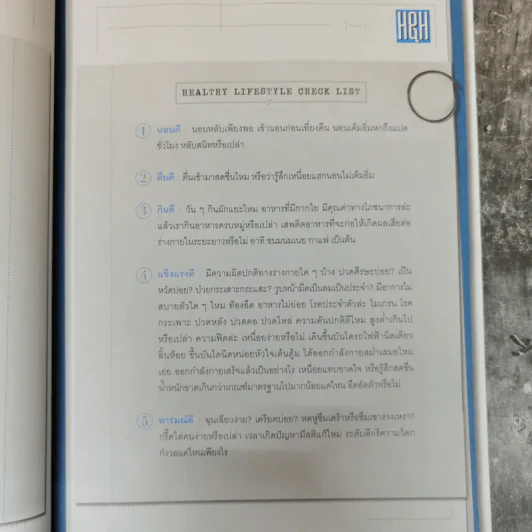 H&H
HEALTHY LIFESTYLE CHECK LIST
1 นอนดี : นอนหลับเพียงพอ เข้านอนก่อนเที่ยงคืน นอนเต็มอิ่มหกถึงแปด
ชั่วโมง หลับสนิทหรือเปล่า
2 ตื่นดี : ตื่นเช้ามาสดชื่นไหม หรือว่ารู้สึกเหนื่อยแฮกนอนไม่เต็มอิ่ม
3 กินดี : วัน ๆ กินผักเยอะไหม อาหารที่มีกากใย มีคุณค่าทางโภชนาการล่ะ
แล้วเรากินอาหารครบหมู่หรือเปล่า เสพติดอาหารที่จะก่อให้เกิดผลเสียต่อ
ร่างกายในระยะยาวหรือไม่ อาทิ ขนมนมเนย กาแฟ เป็นต้น
4 แข็งแรงดี : มีความผิดปกติทางร่างกายใด ๆ บ้าง ปวดศีรษะบ่อย? เป็น
หวัดบ่อย? ป่วยกระเสาะกระแสะ? วูบหน้ามืดเป็นลมเป็นประจำ? มีอาการไม่
สบายตัวใด ๆ ไหม ท้องอืด อาหารไม่ย่อย โรคประจำตัวล่ะ ไมเกรน โรค
กระเพาะ ปวดหลัง ปวดคอ ปวดไหล่ ความดันปกติดีไหม สูงต่ำเกินไป
หรือเปล่า ความฟิตล่ะ เหนื่อยง่ายหรือไม่ เดินขึ้นบันไดรถไฟฟ้านิดเดียว
ลิ้นห้อย ขึ้นบันไดนิดหน่อยหัวใจเต้นตู้ม ได้ออกกำลังกายสม่ำเสมอไหม
เอ่ย ออกกำลังกายเสร็จแล้วเป็นอย่างไร เหนื่อยแทบขาดใจ หรือรู้สึกสดชื่น
น้ำหนักขาดเกินกว่าเกณฑ์มาตรฐานไปมากน้อยแค่ไหน อึดอัดตัวหรือไม่
5 อารมณ์ดี : ฉุนเฉียวง่าย? เครียดบ่อย? หดหู่ซึมเศร้าหรือซึมเซาง่วงเหงา?
กรี๊ดใส่คนง่ายหรือเปล่า เวลาเกิดปัญหามีสติแก้ไหม ระดับดีกรีความวิตก
กังวลแค่ไหนเพียงไร